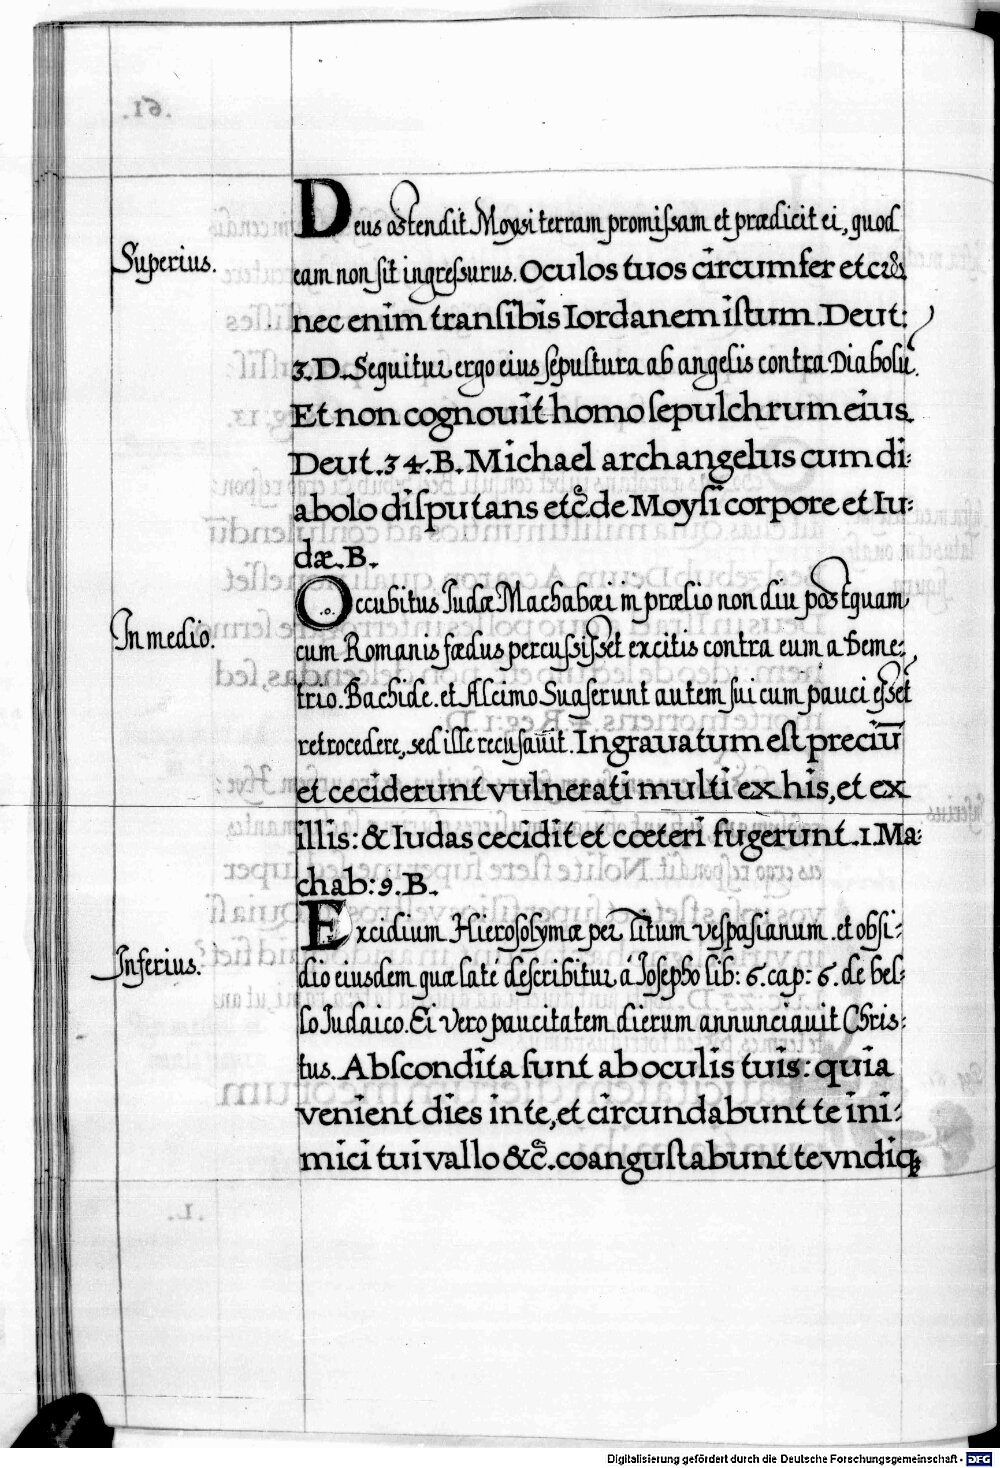 Superius.
Deus ostendit Moysi terram promissam et prædicit ei, quod
eam non sit ingressurus. Oculos tuos circumfer et c&
nec enim transibis Iordanem istum. Deut:
3. D. Sequitur ergo eius sepultura ab angelis contra Diabolū.
Et non cognouit homo sepulchrum eius.
Deut. 34. B. Michael archangelus cum di:
abolo disputans etc̄. de Moysi corpore et Iu:
dæ. B.
In medio.
Occubitus Iudæ Machabæi in prælio non diu postquam
cum Romanis fædus percussisset excitis contra eum a Deme:
trio. Bachide. et Alcimo. Suaserunt autem sui cum pauci esset
retrocedere, sed ille recusauit. Ingrauatum est preciū
et ceciderunt vulnerati multi ex his, et ex
illis: & Iudas cecidit et cœteri fugerunt. 1. Ma:
chab: 9. B.
Inferius.
Excidium Hierosolymæ per Titum vespasianum. et obsi:
dio eiusdem quæ late describitur á Iosepho lib: 6. cap: 6. de bel:
lo Iudaico. Ei vero paucitatem dierum annunciauit Chris:
tus. Abscondita sunt ab oculis tuis: quia
venient dies in te, et circundabunt te ini:
mici tui vallo &c̄. coangustabunt te vndiq
Digitalisierung gefördert durch die Deutsche Forschungsgemeinschaft - DFG